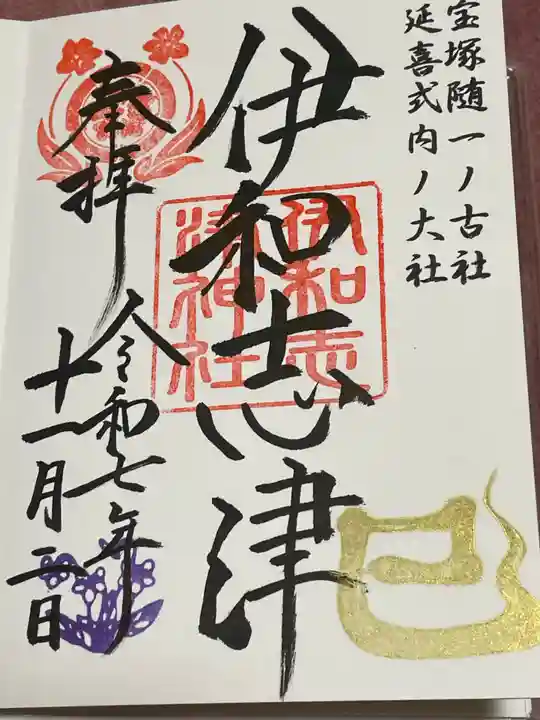 宝塚随一ノ古社
延喜式内ノ大社
伊和志津
伊和志
津神社
奉拝
令和七年
十一月二日
巳